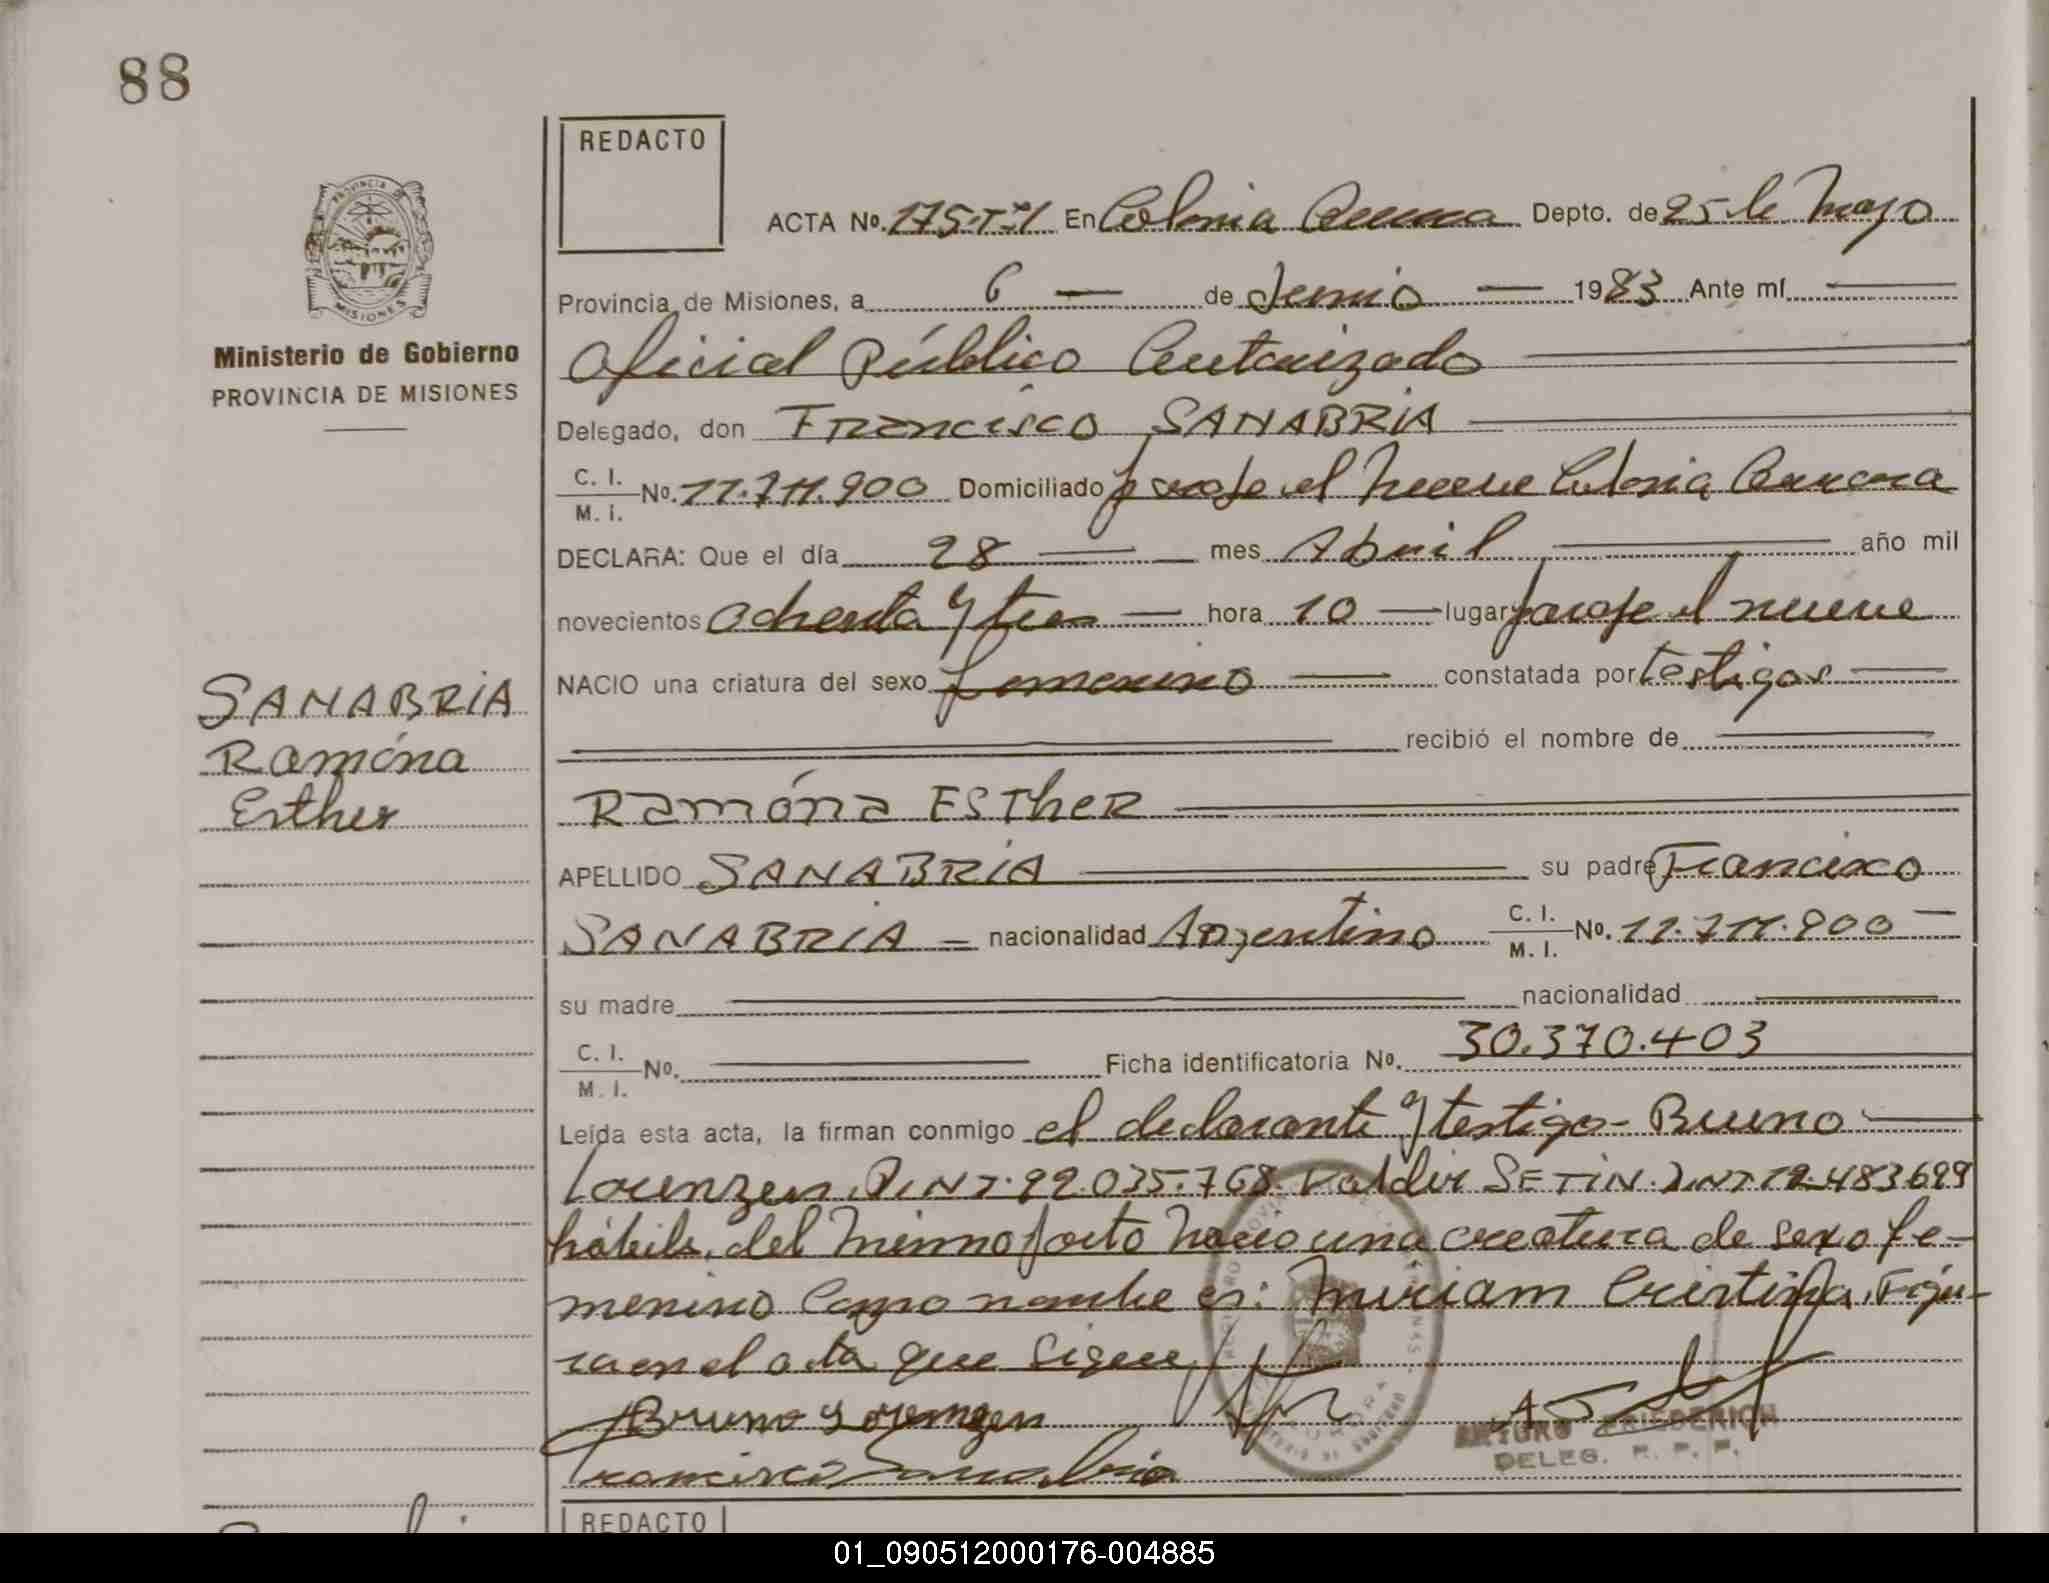 88
REDACTO
PROVINCIA DE
MISIONES
Ministerio de Gobierno
PROVINCIA DE MISIONES
ACTA No. 175.T°1 En Colonia Aurora Depto. de 25 de Mayo
Provincia de Misiones, a 6 de Junio 1983 Ante mí
Oficial Público Autorizado
Delegado, don Francisco SANABRIA
C. I. M. I. No. 11.711.900 Domiciliado paraje el nueve Colonia Aurora
DECLARA: Que el día 28 mes Abril año mil
novecientos ochenta y tres hora 10 lugar paraje el nueve
NACIO una criatura del sexo femenino constatada por testigos
recibió el nombre de
SANABRIA
Ramóna
Esther
Ramóna ESTher
APELLIDO SANABRIA su padre Francisco
SANABRIA nacionalidad Argentino C. I. M. I. No. 11.711.900
su madre nacionalidad
C. I. M. I. No. Ficha identificatoria No. 30.370.403
Leída esta acta, la firman conmigo el declarante y testigo - Bruno
Lorenzen, D.N.I. 92.035.768. Valdir SETIN. D.N.I. 12.483699
hábile, del mismo parto nacio una creatura de sexo fe-
menino cuyo nombre es: Miriam Cristina, Figu-
ra en el acta que sigue
Bruno Lorenzen
Francisco Sanabria
ARTURO FRIEDERICH
DELEG. R. P. P.
REDACTO
01_090512000176-004885